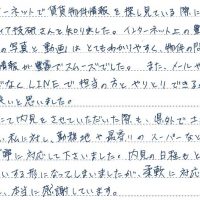 ーネットで賃貸物件情報を探し見ている際に
ィア技研さんと知りました。インターネット上の豊
の写真と動画はとてもわかりやすく、物件の間
情報が豊富でスムーズでした。また、メールや
でなくLINEで担当の方とやりとりできるの
良いと思いました。
に内見をさせていただいた際も、県外で土
い私に対し、勤務地や最寄りのスーパーなど
丁寧に対応して下さいました。内見の日程もと
いする形になってしまいましたが、柔軟に対応
、本当に感謝しています。